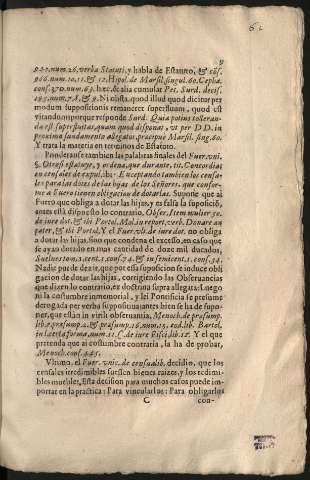 9
947.num.26.verba Statuti, y habla de Estatuto, & cõs.
966.num.10.11.& 12. Hipol. de Marsil. singul. 60. Cepha.
cons. 370. num. 63. hæc, & alia cumulat Pet. Surd. decis.
195. num. 7.8. & 9. Ni obsta, quod illud quod dicitur per
modum suppositionis remaneret superfluum, quod est
vitandum, porque responde Surd. Quia potius toleran-
da est superfluitas, quam quod disponat, vt per DD. in
proximo fundamento allegatos, præcipuè Marsil. sing. 60.
Y trata la materia en terminos de Estatuto.
Ponderase tambien las palabras finales del Fuer. vni.
§. Otrosi estatuye, y ordena, que durante, tit. Concordias
en censales de expuls. ibi: Exceptando tambien los censa-
les para las dotes de las hijas de los Señores, que confor-
me a Fuero tienen obligacion de dotarlas. Supone que al
Fuero que obliga a dotar las hijas, y es falsa la suposiciõ,
antes está dispuesto lo contrario, Obser. Item mulier 30.
de iure dot. & ibi Portol. Mol. in report. verb. Donare an
pater, & ibi Portol. Y el Fuer. vlt. de iure dot. no obliga
a dotar las hijas, sino que condena el excesso, en caso que
se ayan dotado en mas cantidad de doze mil ducados,
Suelues tom. 1. cent. 1. cons. 74. & in semicent. 1. cons. 34.
Nadie puede dezir, que por essa suposicion se induce obli-
gacion de dotar las hijas, corrigiendo las Observancias
que dizen lo contrario, ex doctrina supra allegata: Luego
ni la costumbre inmemorial, y lei Pontificia se presume
derogada per verba suppositiua, antes bien se ha de supo-
ner, que están in viridi obseruantia, Menoch. de præsump.
lib. 2. præsump. 2. & præsump. 16. num. 15. eod. lib. Bartol.
in l. certa forma, num. 11. C. de iure Fisci, lib. 12. Y el que
pretenda que ai costumbre contraria, la ha de probar,
Menoch. cons. 945.
Vltimo, el Fuer. vnic. de censualib. decidiò, que los
censales irredimibles fuessen bienes raizes, y los redimi-
bles muebles, Esta decision para muchos casos puede im-
portar en la practica: Para vincularlos: Para obligarlos
C con-